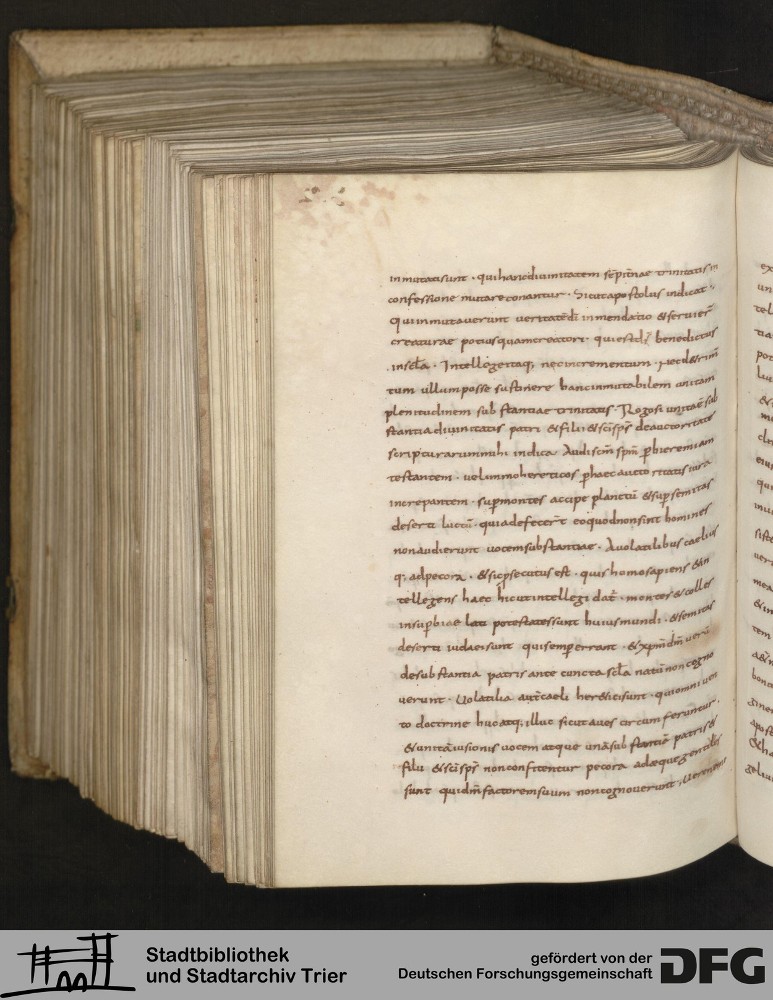 inmutati sunt · qui hanc diuinitatem sēpit̄nae trinitatis in
confessione mutare conantur · Sicut apostolus indicat ·
Qui inmutauerunt ueritatē dī in mendatio & seruier̄
creaturae potius quam creatori · qui est d̄s benedictus
in scl̄a · Intellegeritaq; nec incrementum · nec d&rim̄
tum ullum posse sustinere hanc inmutabilem unitam
plenitudinem substantiae trinitatis · Rogo si unitaē sub
stantia diuinitatis patri & filii & sc̄i sp̄s de auctoritate
scripturarum mihi indica Audi sc̄m sp̄m p̄ hieremiam
testantem · uel immo hereticos p̄ haec auctoritatis iura
increpantem · sup̄ montes accipe planctū & sup̄ semitas
deserti luctū · quia defecer̄t eo quod non sint homines
non audierunt uocem substantiae · A uolatilibus caeli us
q; ad pecora · & sic p̄secutus est · quis homo sapiens & in
tellegens haec hic ut intellegi dat̄ · montes & colles
in sup̄biae lati potestates sunt huius mundi · & semitas
deserti iudaei sunt qui semp̄ errant · & xp̄m dm̄ uerū
de substantia patris ante cuncta scl̄a natū non cogno
uerunt · Uolatilia aut̄ caeli her&ici sunt · qui omni uen
to doctrine huc atq; illuc sicut aues circum feruntur ·
& unitā iusionis uocem atque unā substantiā patris &
filii & sc̄i sp̄s non confitentur pecora adaeque gentiles
sunt qui dm̄ factorem suum non cognouerunt,
Stadtbibliothek
und Stadtarchiv Trier
gefördert von der
Deutschen Forschungsgemeinschaft
DFG